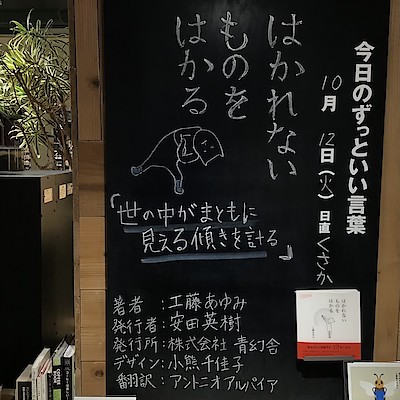 今日のずっといい言葉
10月12日(火)日直くさか
はかれない
ものを
はかる
「世の中がまともに
見える傾きを計る」
著者:工藤あゆみ
発行者:安田英樹
発行所:株式会社青幻舎
デザイン:小熊千佳子
翻訳:アントニオアルパイア
はかれない
ものを
はかる